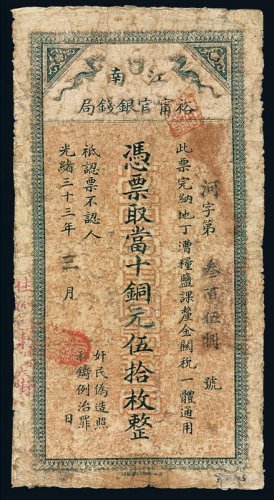 江南
裕甯官銀錢局
此票完納地丁漕糧鹽課釐金關稅一體通用
河字第叁百伍 號
憑票取當十銅元伍拾枚整
祇認票不認人
光緒三十三年 月 日
奸民僞造照
私鑄例治罪